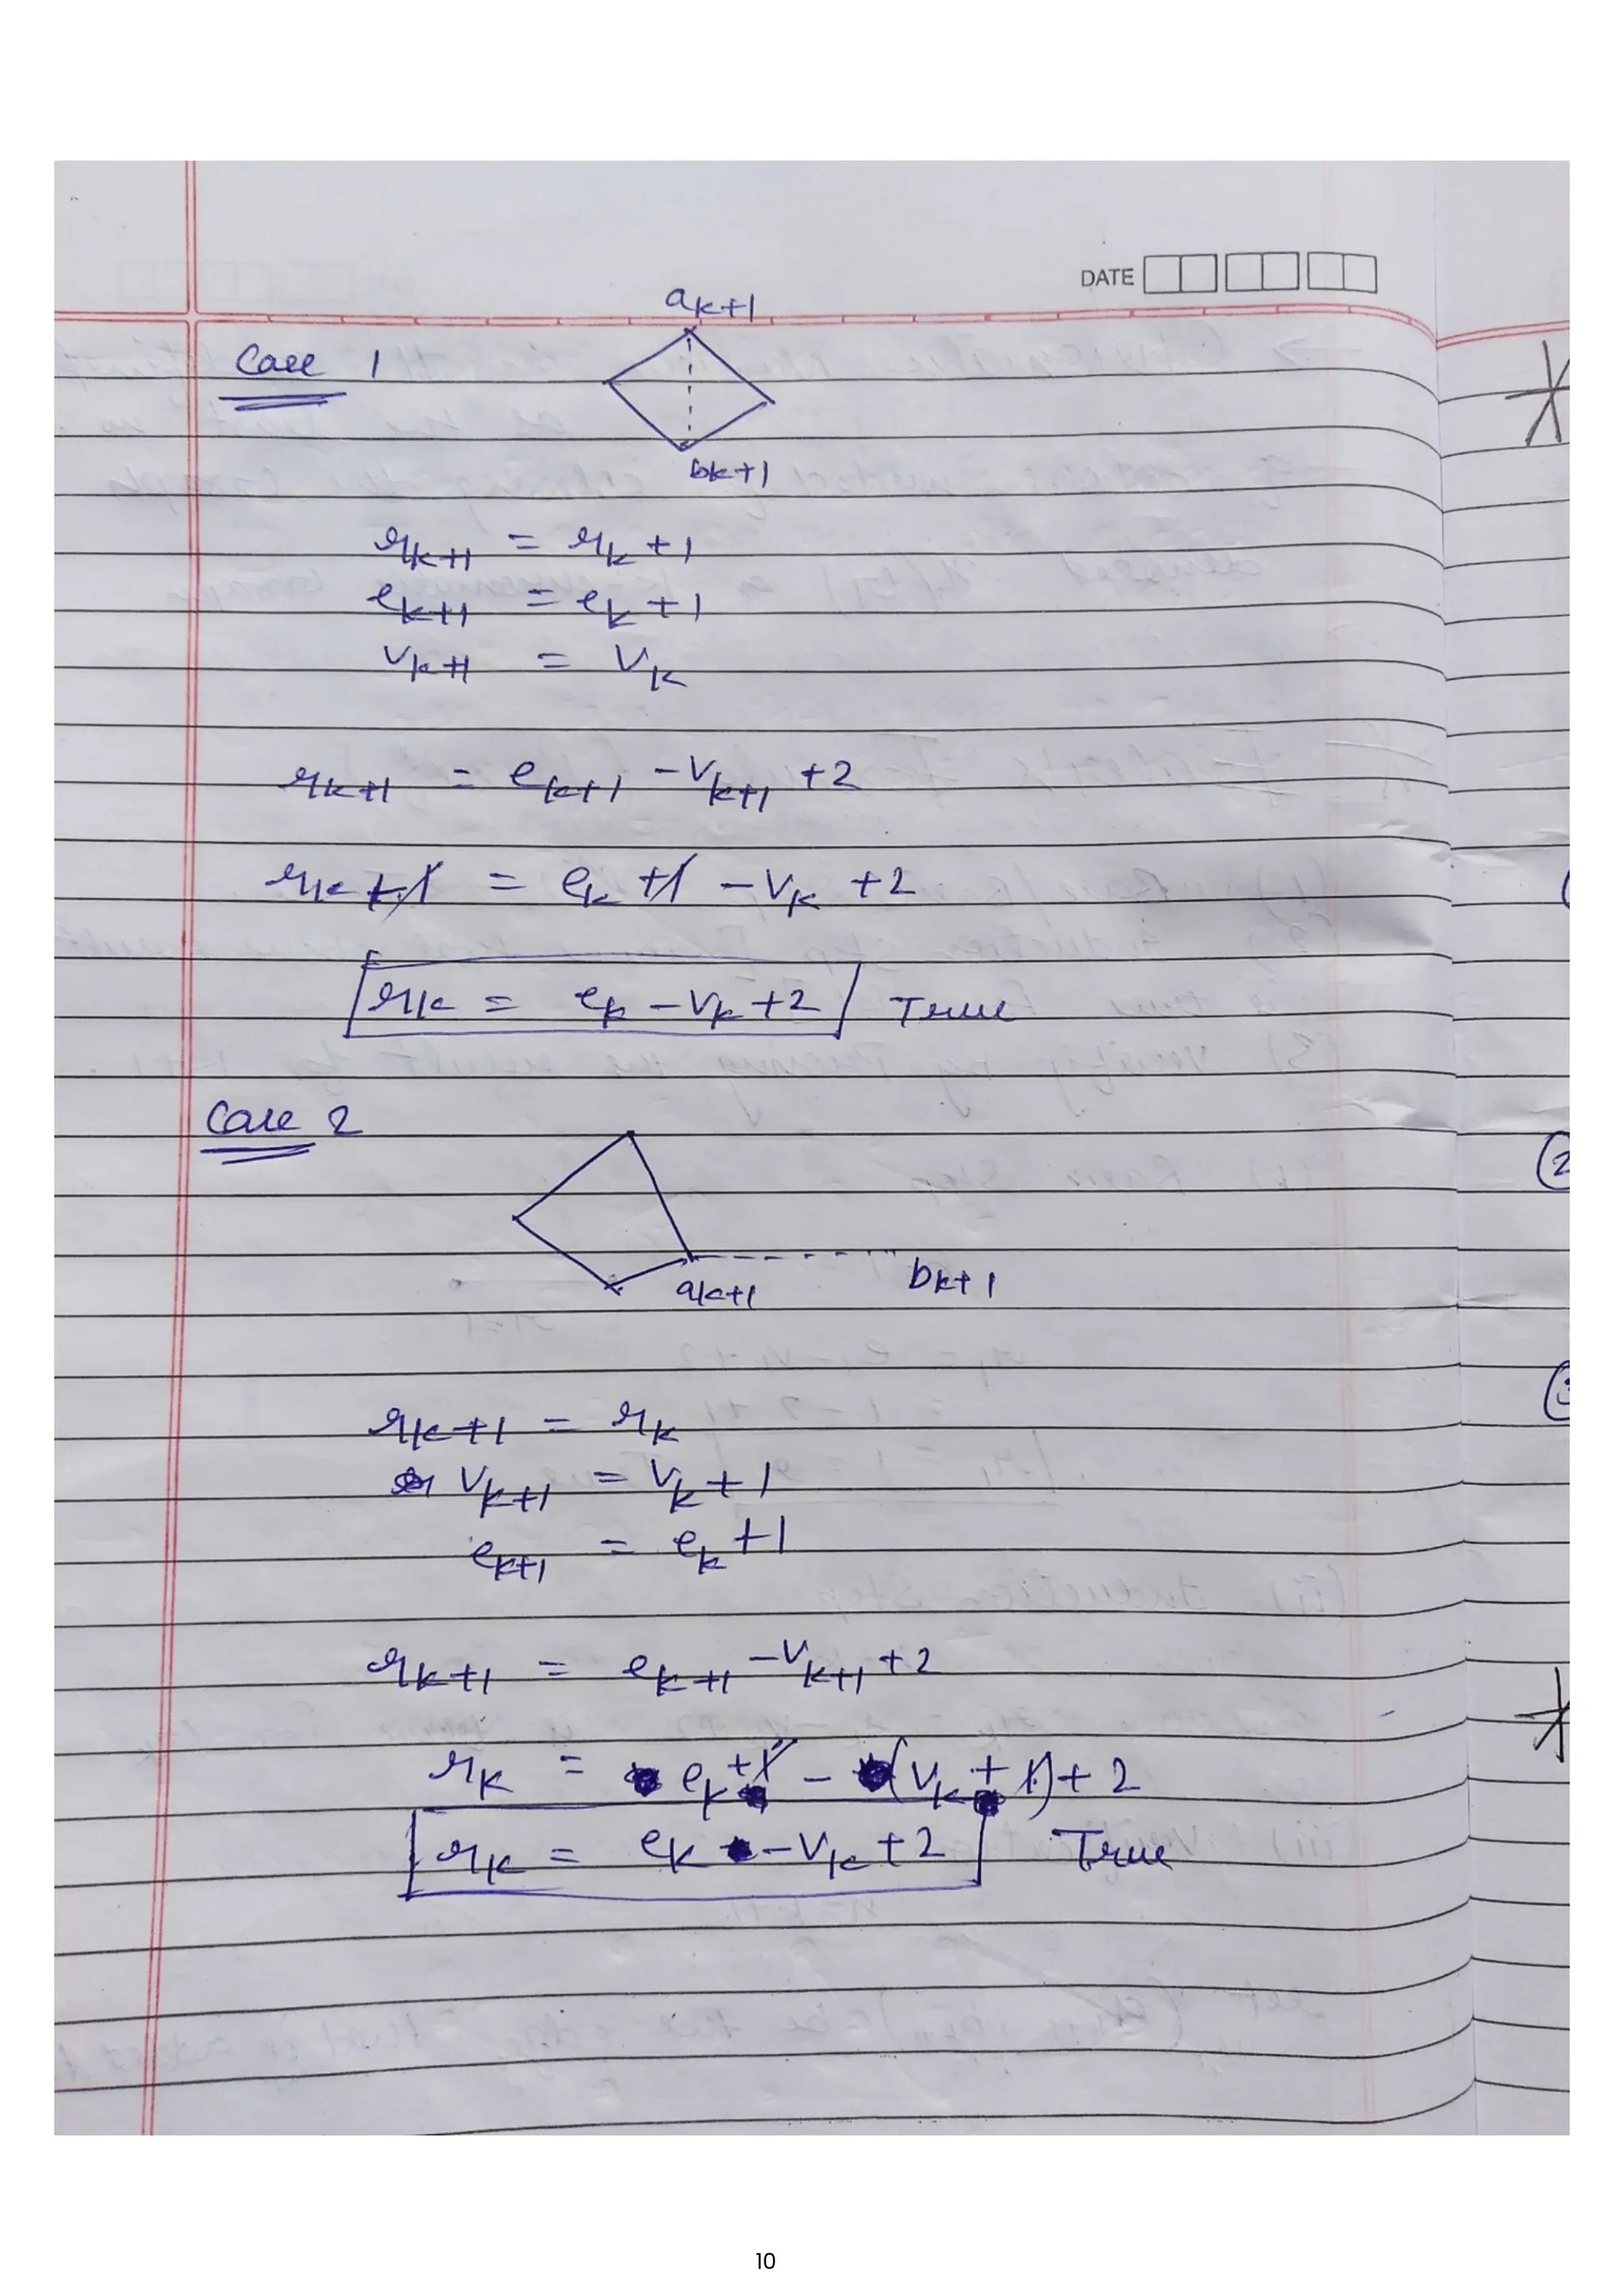 DATE
a_{k+1}
Case 1
b_{k+1}
r_{k+1} = r_k + 1
e_{k+1} = e_k + 1
v_{k+1} = v_k
r_{k+1} = e_{k+1} - v_{k+1} + 2
r_k + 1 = e_k + 1 - v_k + 2
r_k = e_k - v_k + 2 True
Case 2
a_{k+1} b_{k+1}
r_{k+1} = r_k
v_{k+1} = v_k + 1
e_{k+1} = e_k + 1
r_{k+1} = e_{k+1} - v_{k+1} + 2
r_k = e_k + 1 - (v_k + 1) + 2
r_k = e_k - v_k + 2 True
2
10